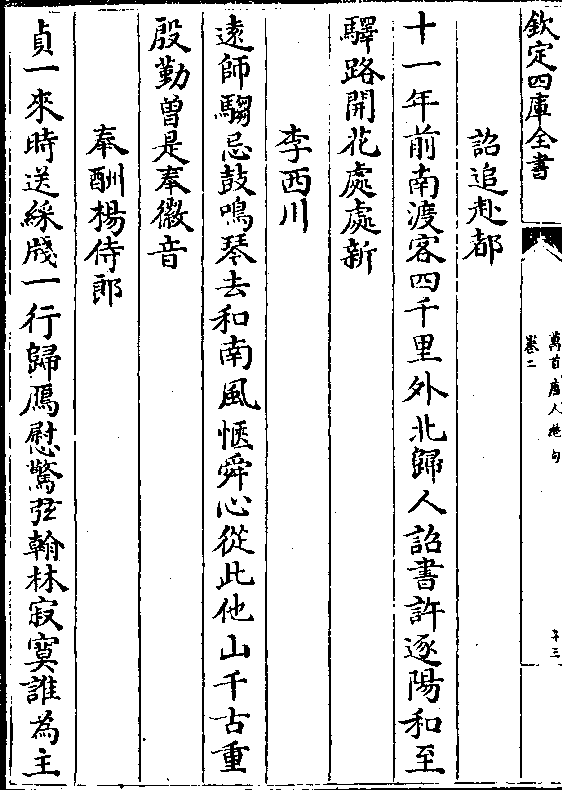 欽定四庫全書
萬首唐人絶句
卷二
詔追赴都
十一年前南渡客四千里外北歸人詔書許逐陽和至
驛路開花處處新
李西川
遠師騶忌鼓鳴琴去和南風愜舜心從此他山千古重
殷勤曽是奉徽音
奉酬楊侍郎
貞一來時送綵牋一行歸鴈慰驚弦翰林寂寞誰為主